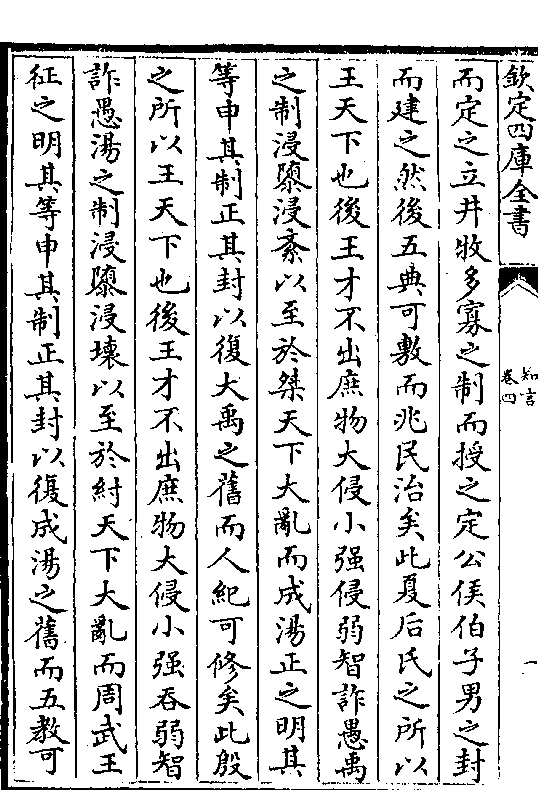 欽定四庫全書
知言
卷四
一
而定之立井牧多寡之制而授之定公侯伯子男之封
而建之然後五典可敷而兆民治矣此夏后氏之所以
王天下也後王才不出庶物大侵小强侵弱智詐愚禹
之制浸隳浸紊以至於桀天下大亂而成湯正之明其
等申其制正其封以復大禹之舊而人紀可修矣此殷
之所以王天下也後王才不出庶物大侵小强吞弱智
詐愚湯之制浸隳浸壞以至於紂天下大亂而周武王
征之明其等申其制正其封以復成湯之舊而五教可